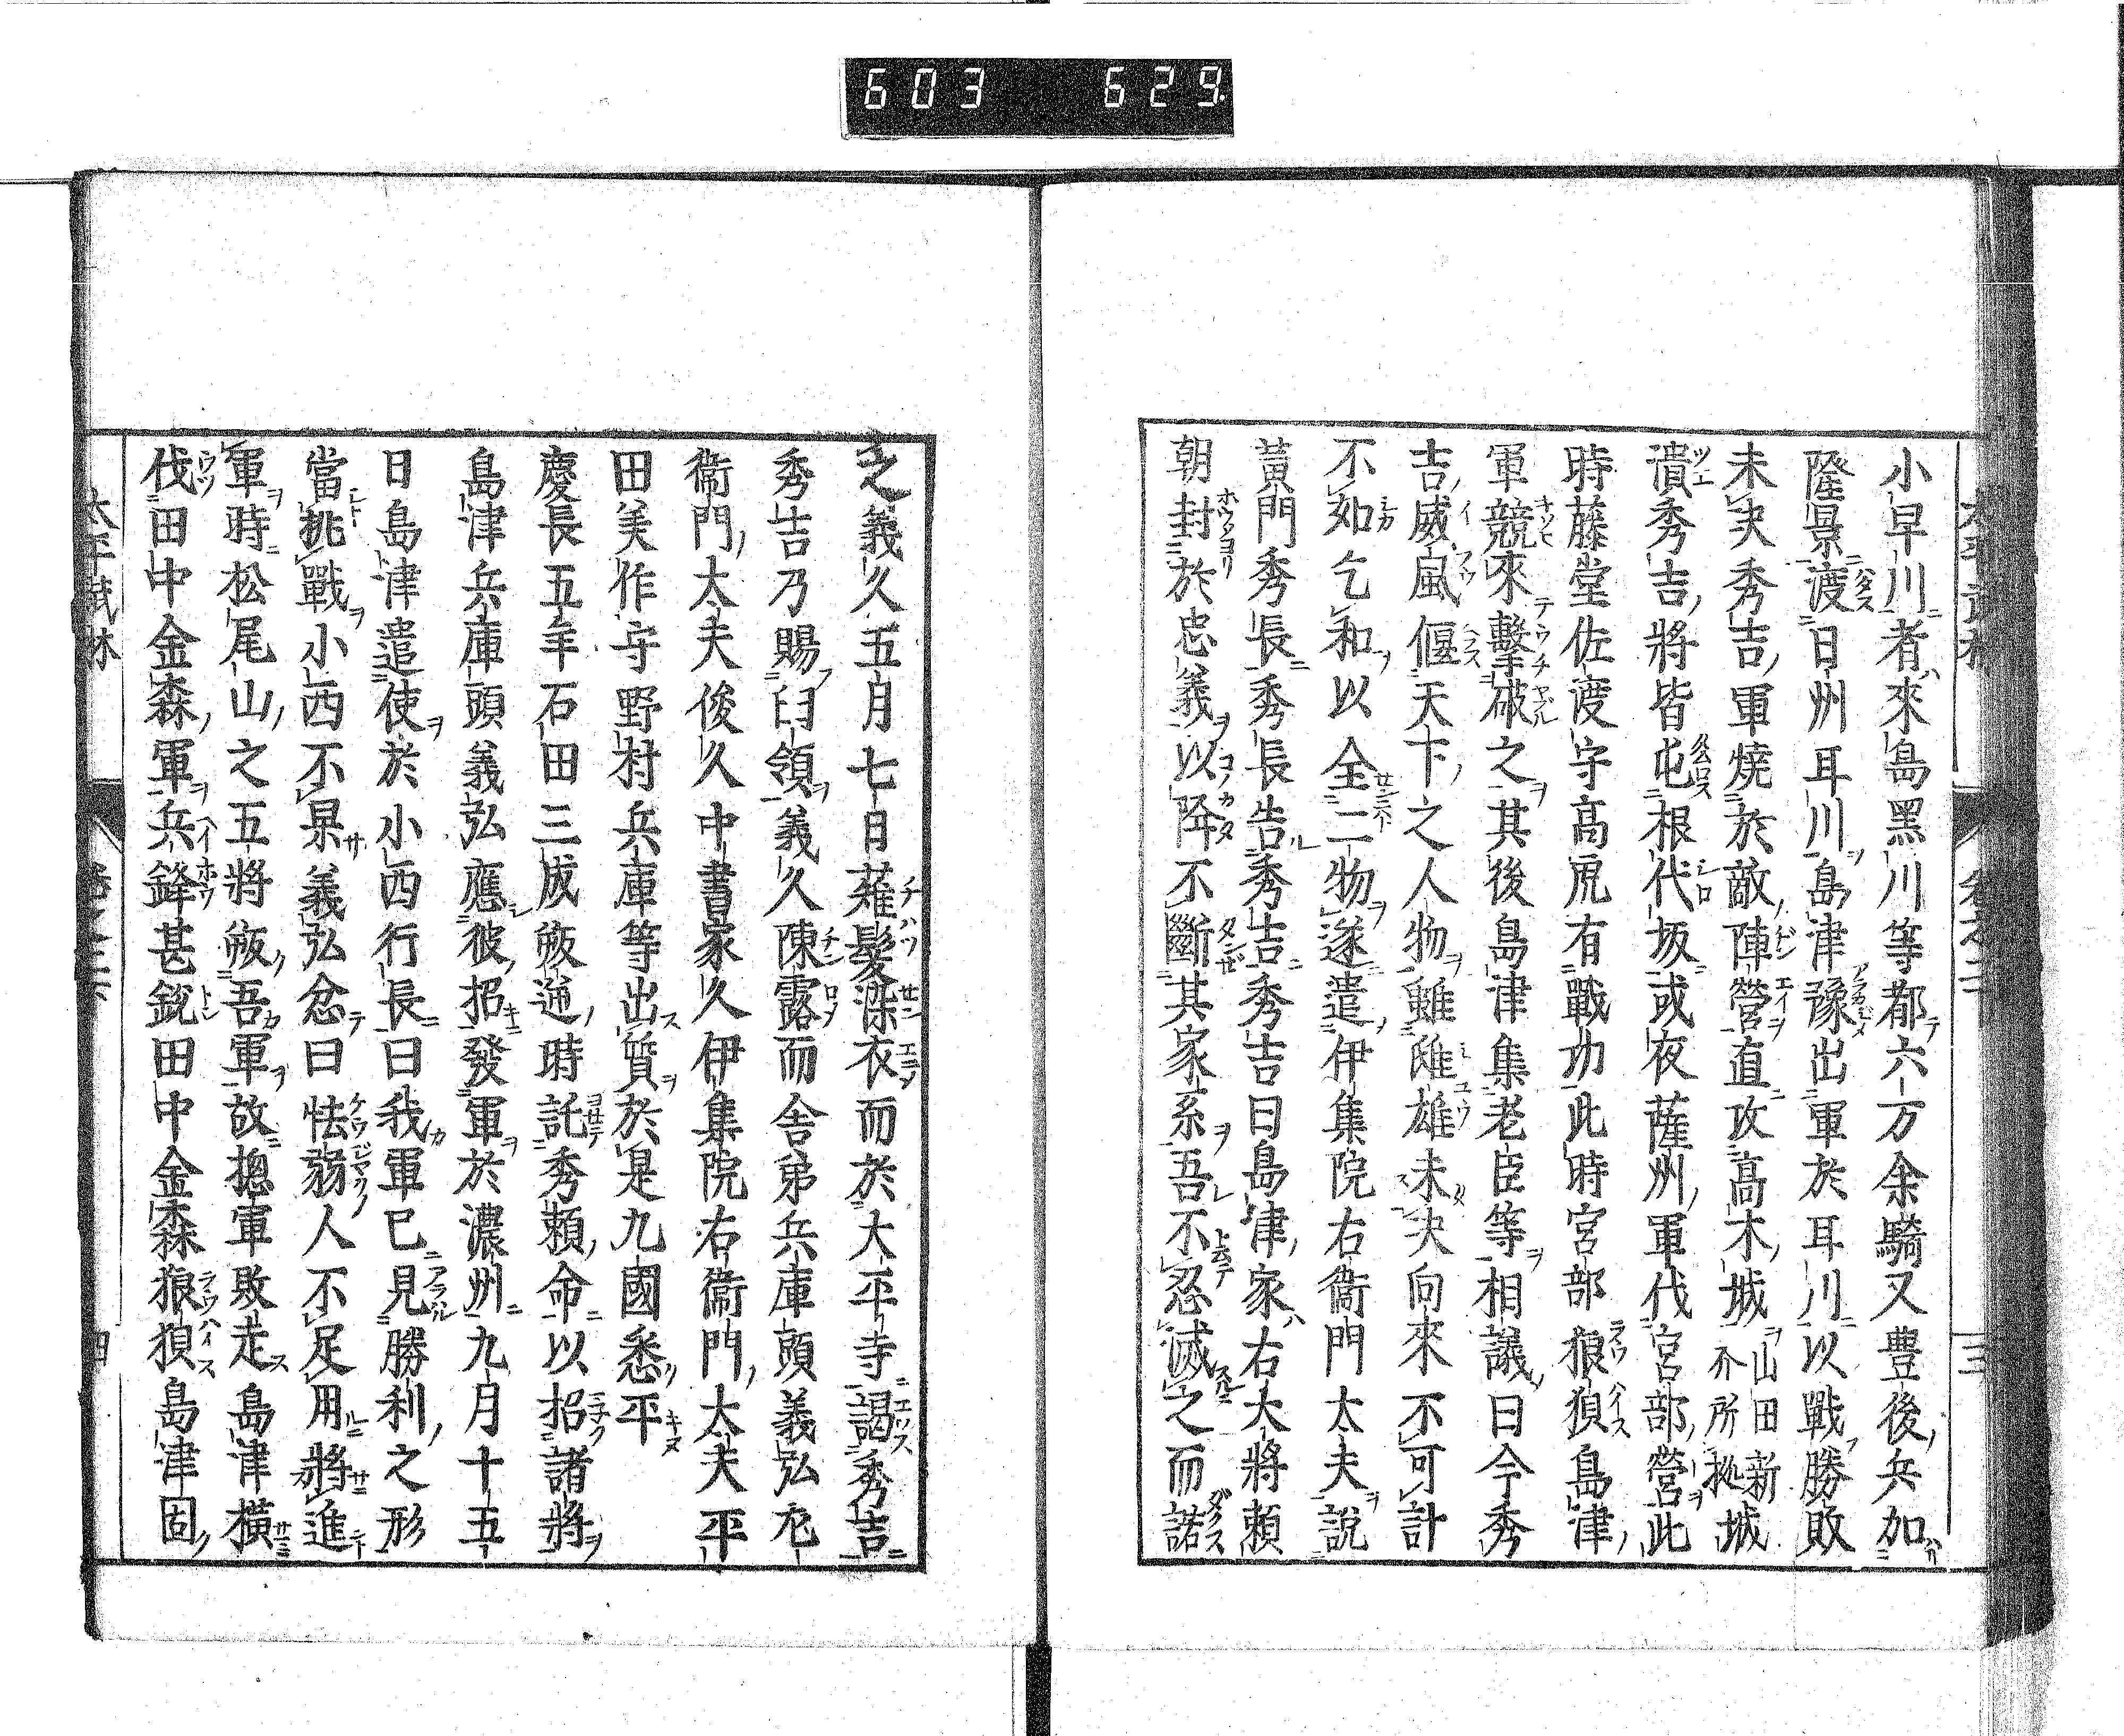 603 629.
小早川者來島黑川等都六万余騎又豊後兵加
隆景渡日州耳川島津豫出軍於耳川以戰勝敗
未决秀吉軍燒於敵陣營直攻高木城山田新城
介所拠
潰秀吉將皆屯根代坂或夜薩州軍伐宮部營此
時藤堂佐渡守高虎有戰功此時宮部狼狽島津
軍競來擊破之其後島津集老臣等相議曰今秀
吉威風偃天下之人物雖雌雄未决向來不可計
不如乞和以全二物遂遣伊集院右衞門太夫說
黃門秀長秀長告秀吉秀吉曰島津家右大將賴
朝封於忠義以降不斷其家系吾不忍滅之而諾
之義久五月七日薙髮染衣而於大平寺謁秀吉
秀吉乃賜旧領義久陳露而舍弟兵庫頭義弘尤
衞門太夫俊久中書家久伊集院右衞門太夫平
田美作守野村兵庫等出質於是九國悉平
慶長五年石田三成叛逆時託秀賴命以招諸將
島津兵庫頭義弘應彼招發軍於濃州九月十五
日島津遣使於小西行長曰我軍已見勝利之形
當挑戰小西不果義弘忿曰怯弱人不足用將進
軍時松尾山之五將叛吾軍故摠軍敗走島津橫
伐田中金森軍兵鋒甚鋭田中金森狼狽島津固